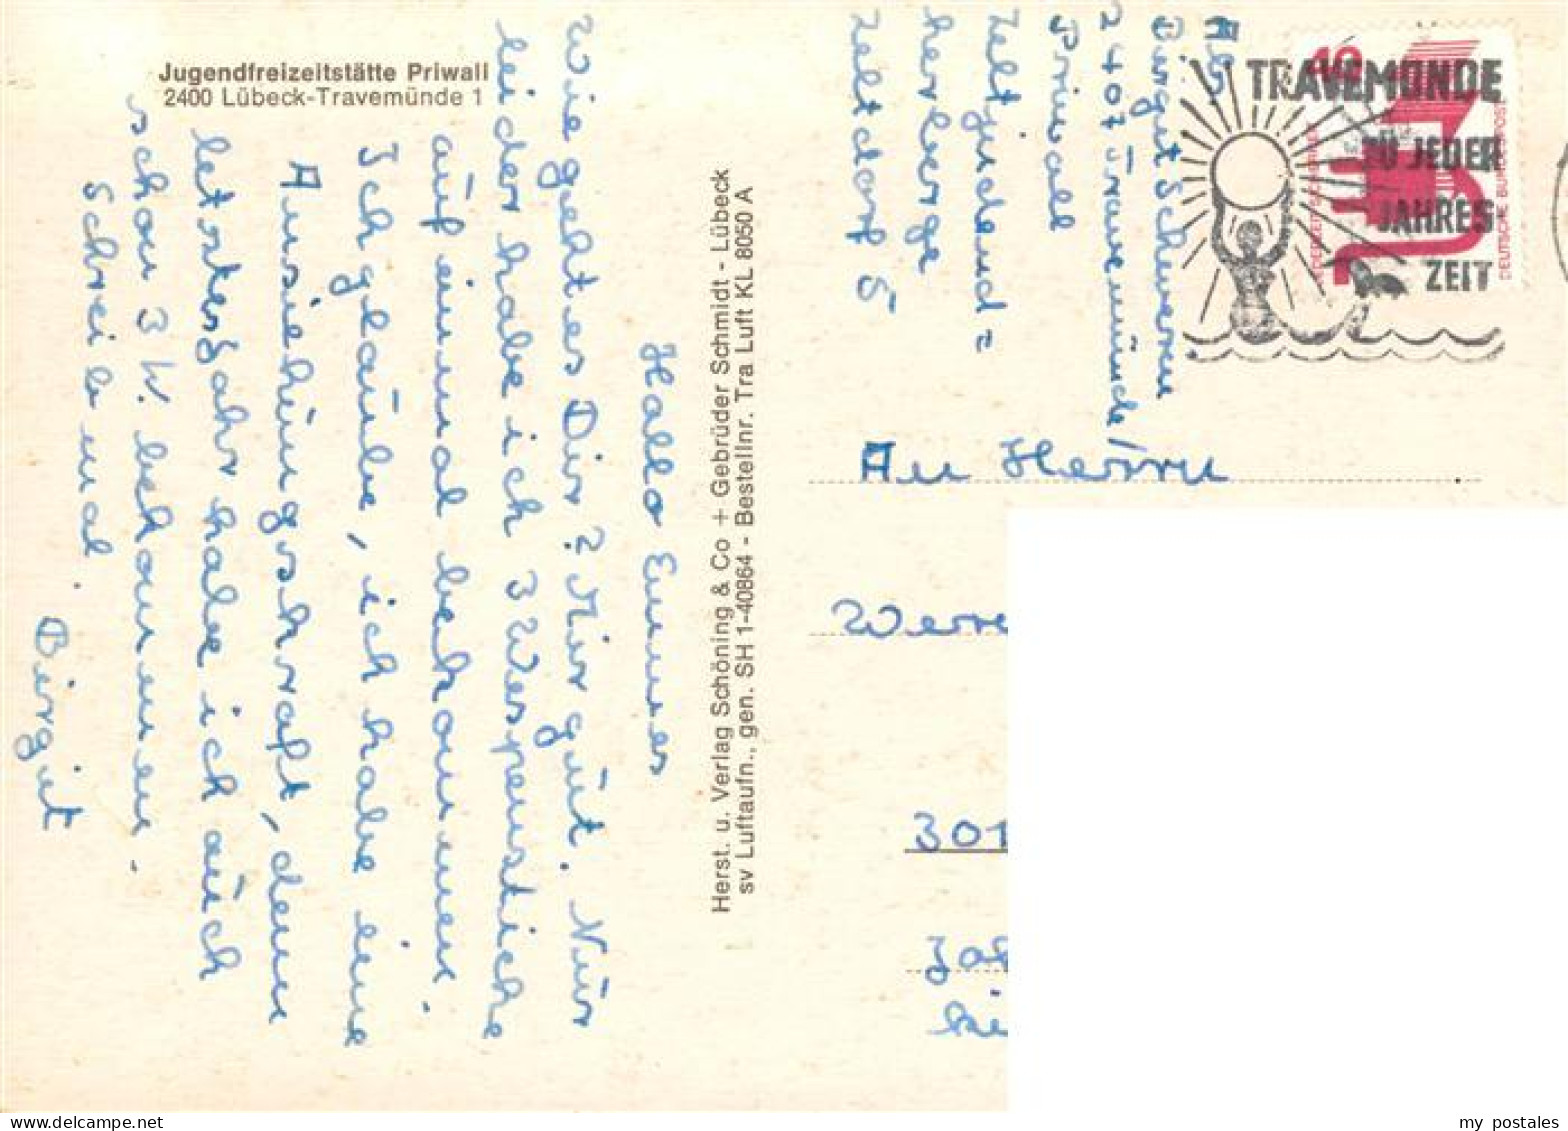 Jugendfreizeitstätte Priwall
2400 Lübeck-Travemünde 1
Hallo Emmes
Wie geht es Dir? Mir gut. Nur
leider habe ich 3 Wespenstiche
auf einmal bekommen.
Ich glaube, ich habe eine
Ausiehungskraft, denn
letztes Jahr habe ich auch
schon 3 W. bekommen.
Schreib mal.
Birgit
Herst. u. Verlag Schöning & Co + Gebrüder Schmidt - Lübeck
sv Luftaufn., gen. SH 1-40864 - Bestellnr. Tra Luft KL 8050 A
Abs
Birgit Schwerm
2407 Travemünde/
Priwall
Zeltjugend=
herberge
Zeltdorf 5
40
DEUTSCHE BUNDESPOST
TRAVEMÜNDE
ZU JEDER
JAHRES
ZEIT
An Herrn
Werre
301
my postales